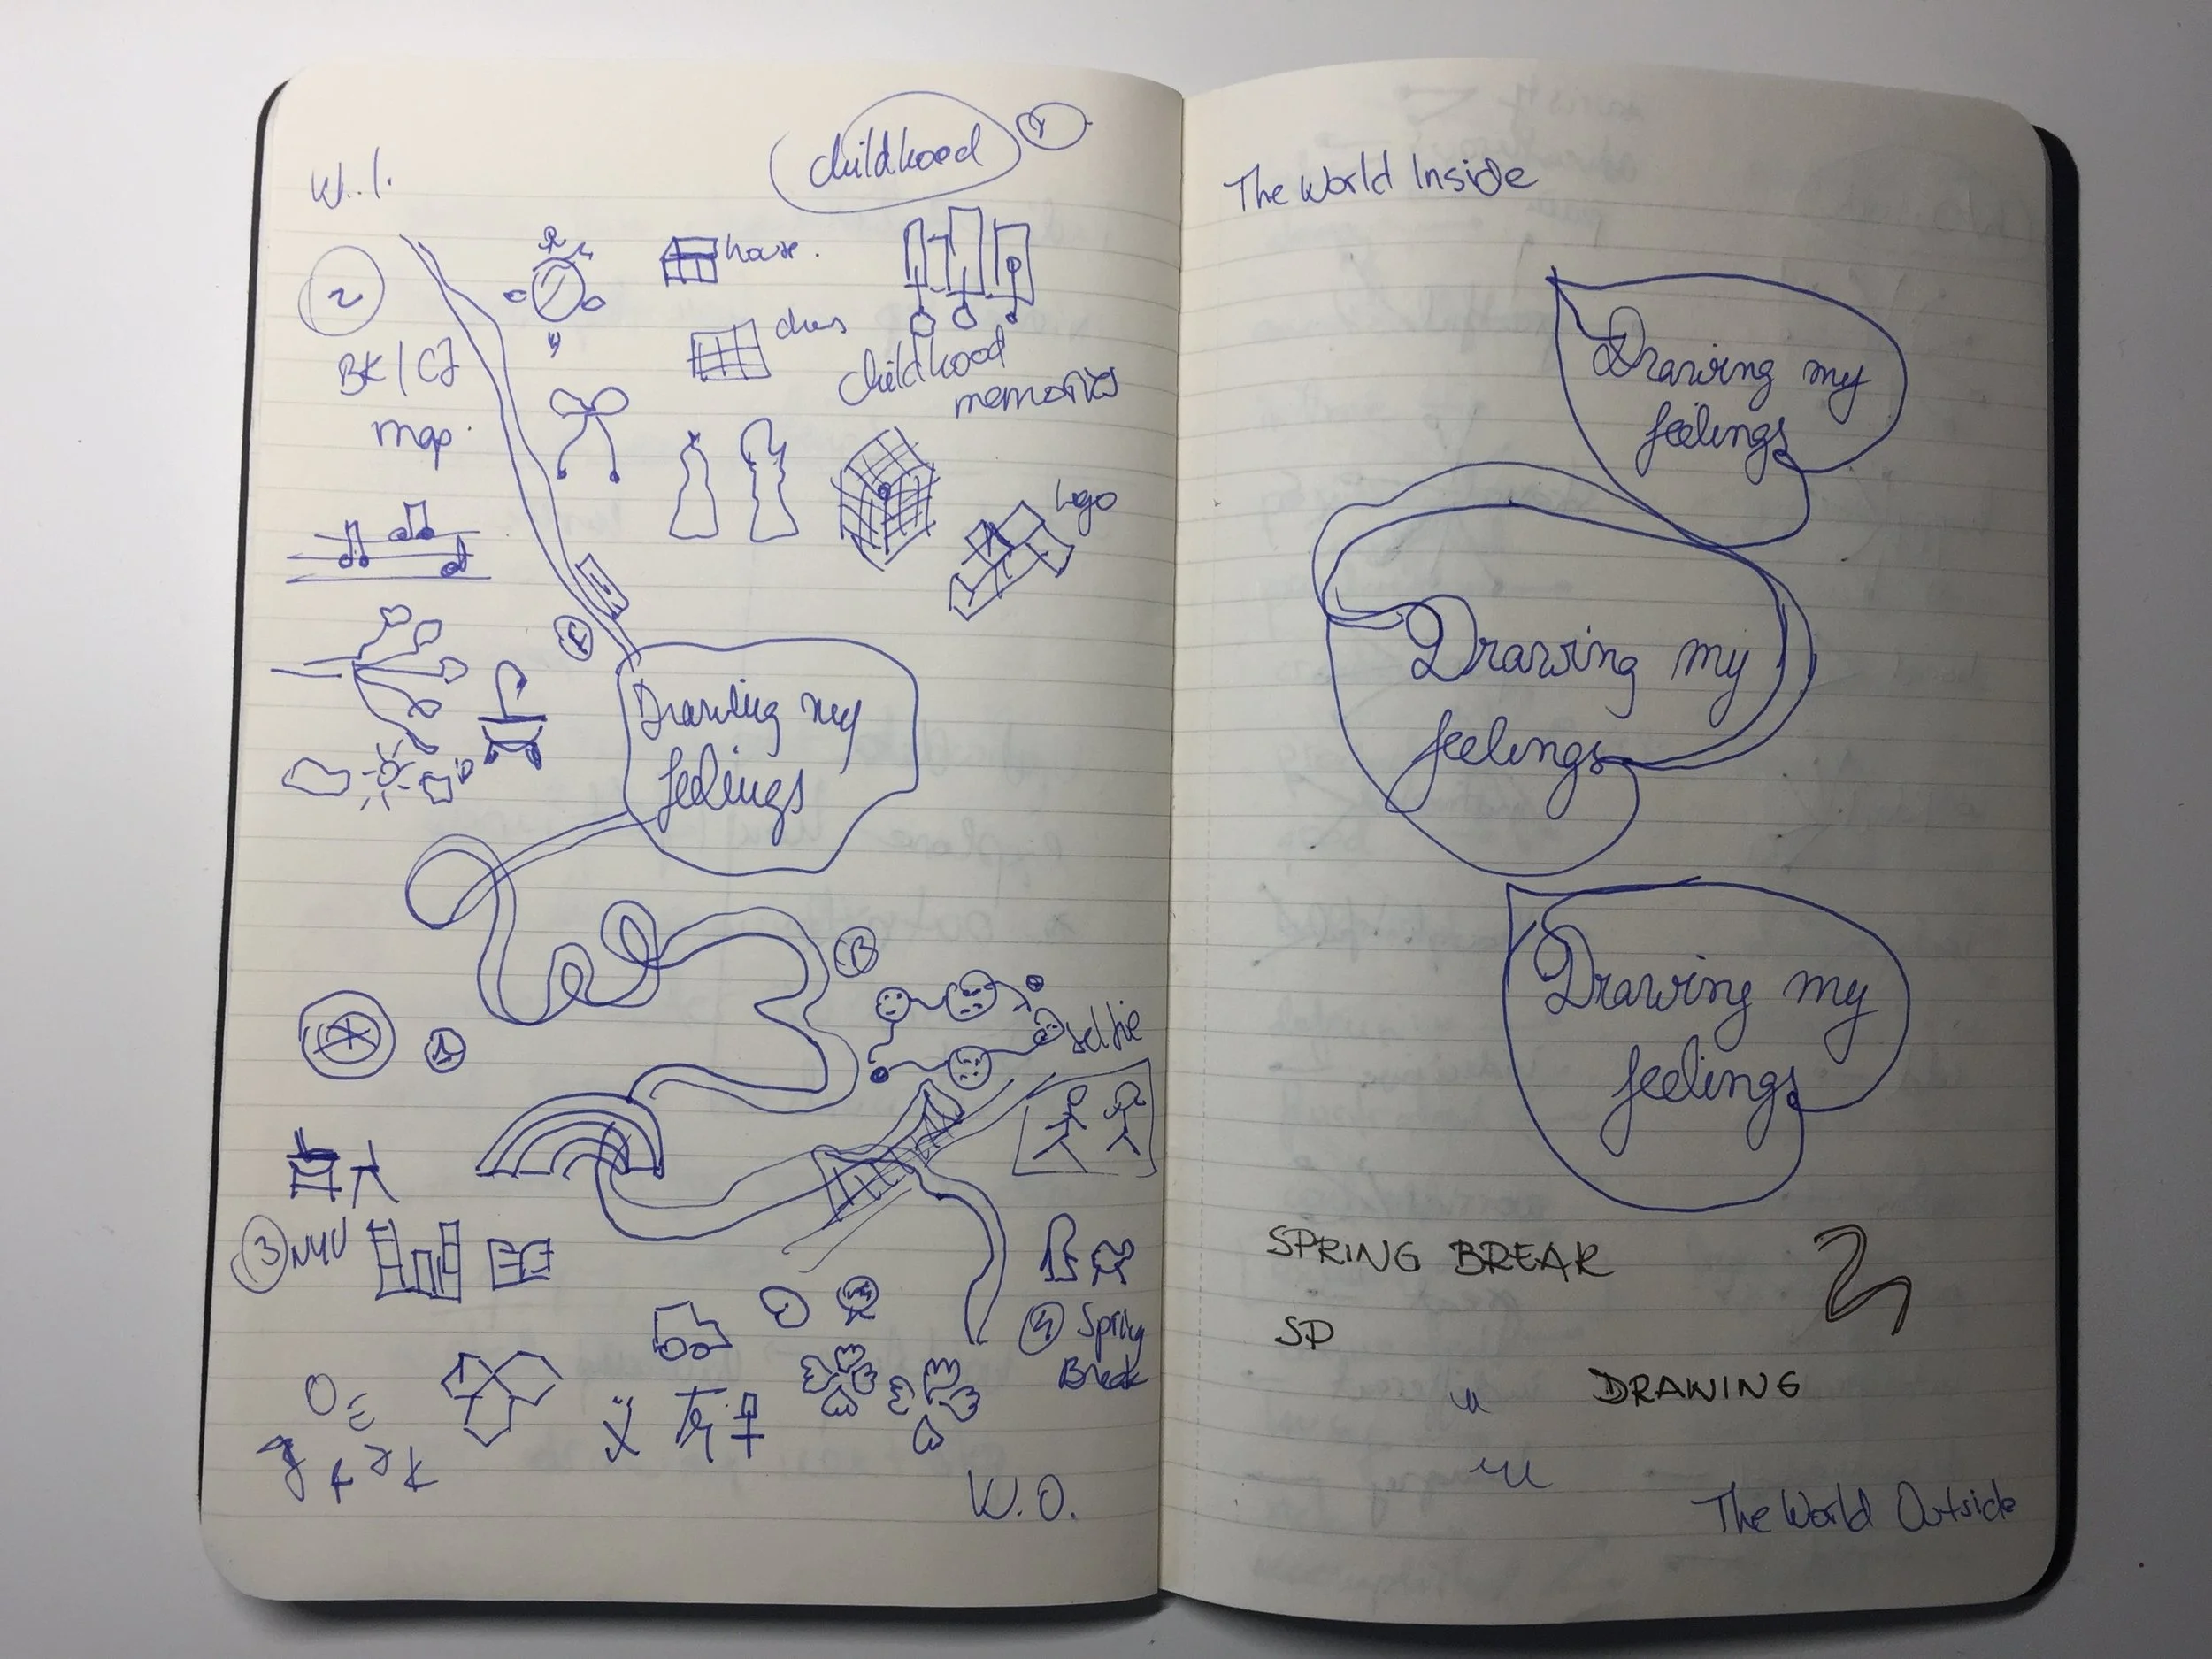 W.I.
childhood
2
BK/CJ
map.
house.
ches
childhood
memories
Lego
Drawing my
feelings
B
selfie
3 NYU
4 Spring
Break
W.O.
The World Inside
Drawing my
feelings
Drawing my
feelings
Drawing my
feelings
SPRING BREAK
SP
DRAWING
The World Outside